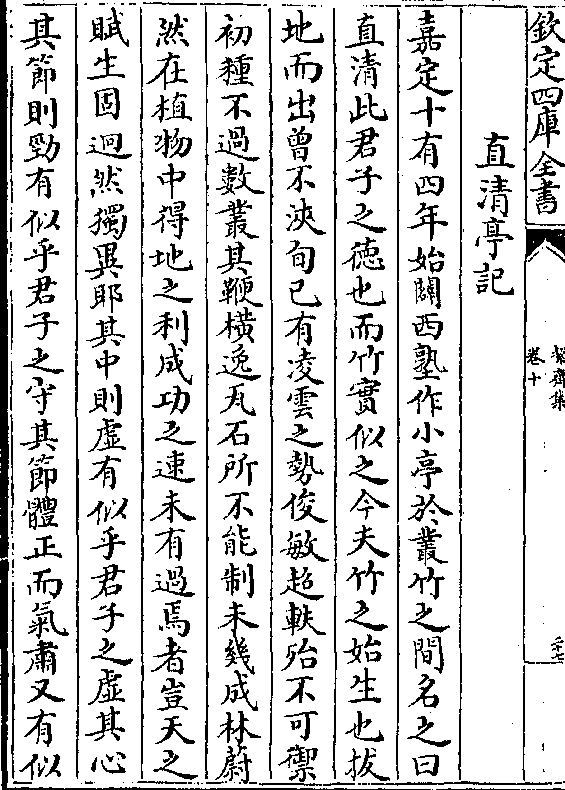 欽定四庫全書
絜齋集
卷十
二十七
直清亭記
嘉定十有四年始闢西塾作小亭於叢竹之間名之曰
直清此君子之德也而竹實似之今夫竹之始生也拔
地而出曾不浹旬已有凌雲之勢俊敏超軼殆不可禦
初種不過數叢其鞭橫逸瓦石所不能制未幾成林蔚
然在植物中得地之利成功之速未有過焉者豈天之
賦生固迥然獨異耶其中則虛有似乎君子之虛其心
其節則勁有似乎君子之守其節體正而氣肅又有似